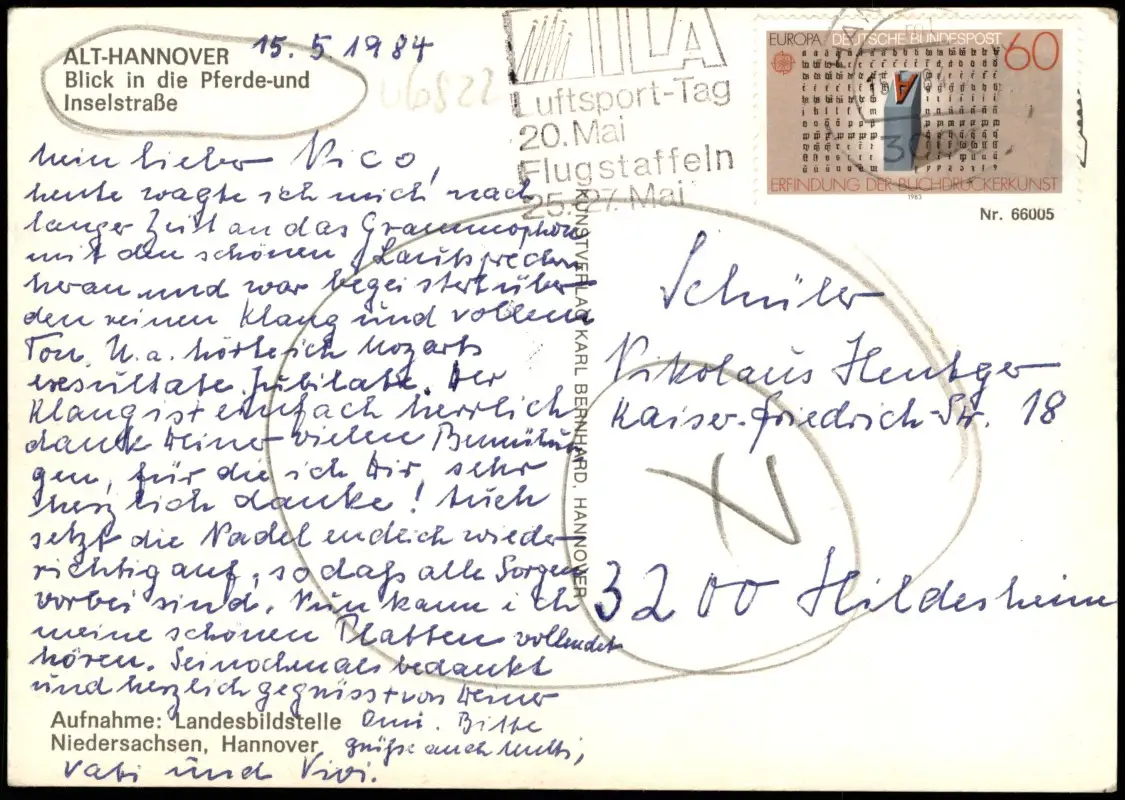 ALT-HANNOVER 15.5.1984
Blick in die Pferde-und
Inselstraße
06822
ILA
Luftsport-Tag
20. Mai
Flugstaffeln
25.-27. Mai
EUROPA DEUTSCHE BUNDESPOST 60
ERFINDUNG DER BUCHDRUCKERKUNST
1983
Nr. 66005
Mein lieber Nico,
heute wagte ich mich nach
langer Zeit an das Grammophon
mit den schönen Lautsprechern
heran und war begeistert über
den reinen Klang und vollem
Ton. U. a. hörte ich Mozarts
exsultate Jubilate. Der
Klang ist einfach herrlich
dank Deiner vielen Bemühun
gen, für die ich Dir sehr
herzlich danke! Auch
setzt die Nadel endlich wieder
richtig auf, so daß alle Sorgen
vorbei sind. Nun kann ich
meine schönen Platten vollendet
hören. Sei nochmals bedankt
und herzlich gegrüsst von Deiner
Omi. Bitte
grüße auch Mutti,
Vati und Vivi.
Aufnahme: Landesbildstelle
Niedersachsen, Hannover
KUNSTVERLAG KARL BERNHARD, HANNOVER
Schüler
Nikolaus Hentger
Kaiser-Friedrich-Str. 18
3200 Hildesheim